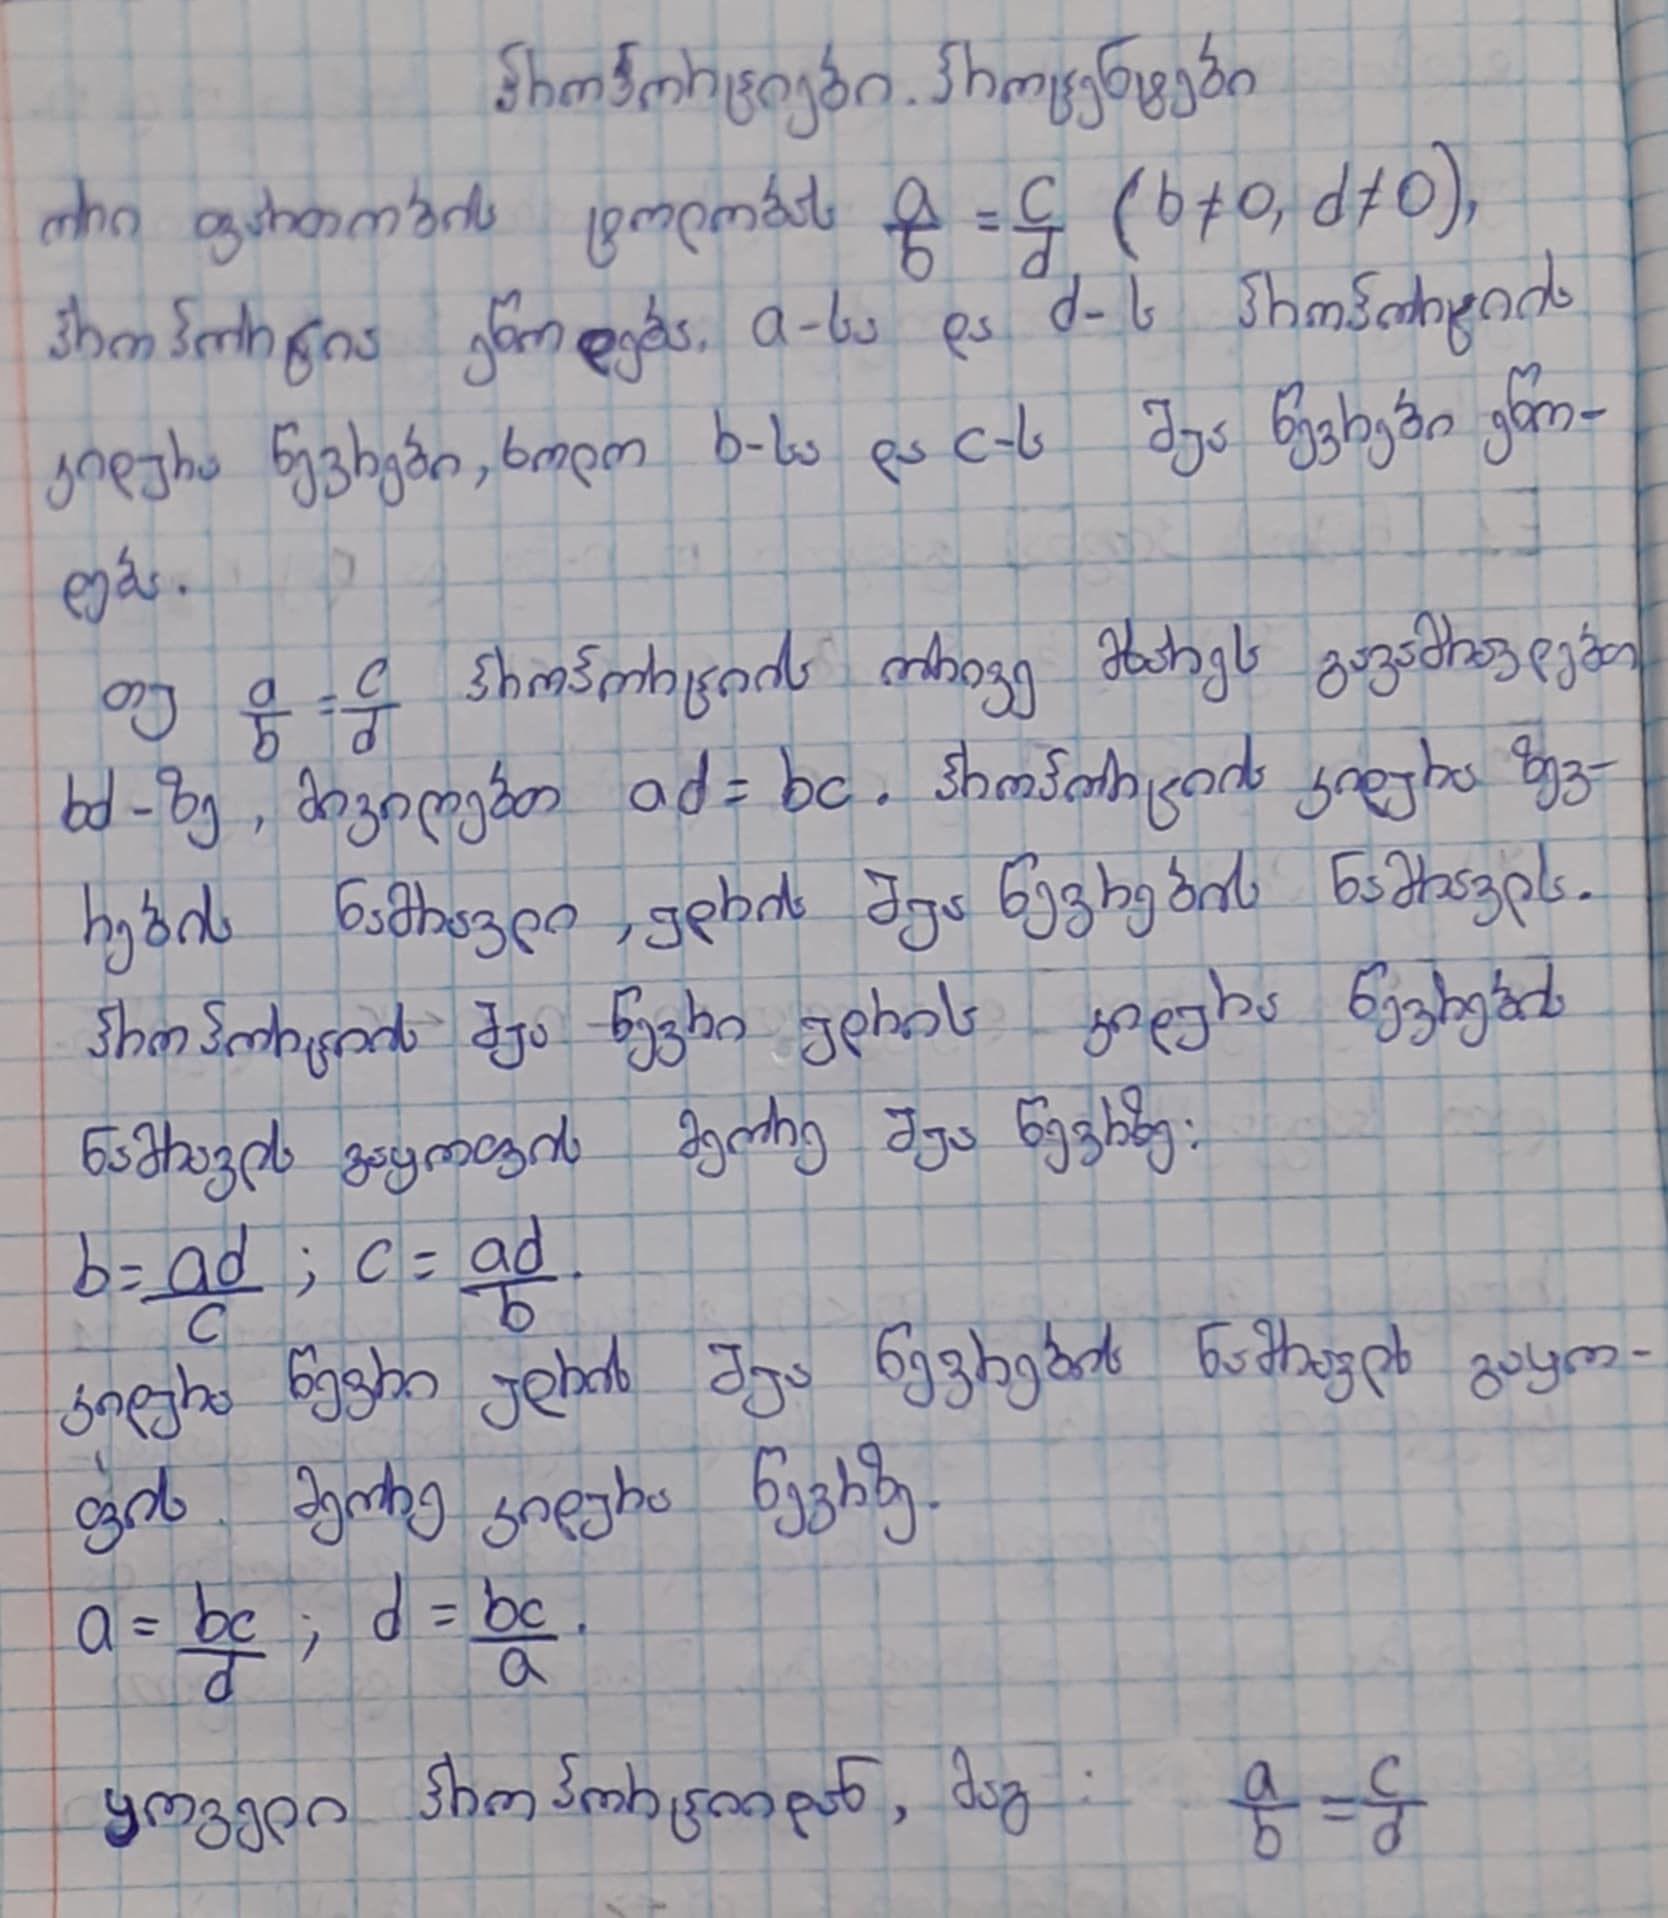 პროპორციები. პროცენტები
ორი ფარდობის ტოლობას a/b = c/d (b≠0, d≠0),
პროპორცია ეწოდება. a-სა და d-ს პროპორციის
კიდურა წევრები, ხოლო b-სა და c-ს შუა წევრები ეწო-
დება.
თუ a/b = c/d პროპორციის ორივე მხარეს გავამრავლებთ
bd-ზე, მივიღებთ ad = bc. პროპორციის კიდურა წევ-
რების ნამრავლი, უდრის შუა წევრების ნამრავლს.
პროპორციის შუა წევრი უდრის კიდურა წევრების
ნამრავლს გაყოფილს მეორე შუა წევრზე:
b = ad/c ; c = ad/b.
კიდურა წევრი უდრის შუა წევრების ნამრავლს გაყო-
ფილს მეორე კიდურა წევრზე.
a = bc/d ; d = bc/a.
ყოველი პროპორციიდან, მაგ: a/b = c/d